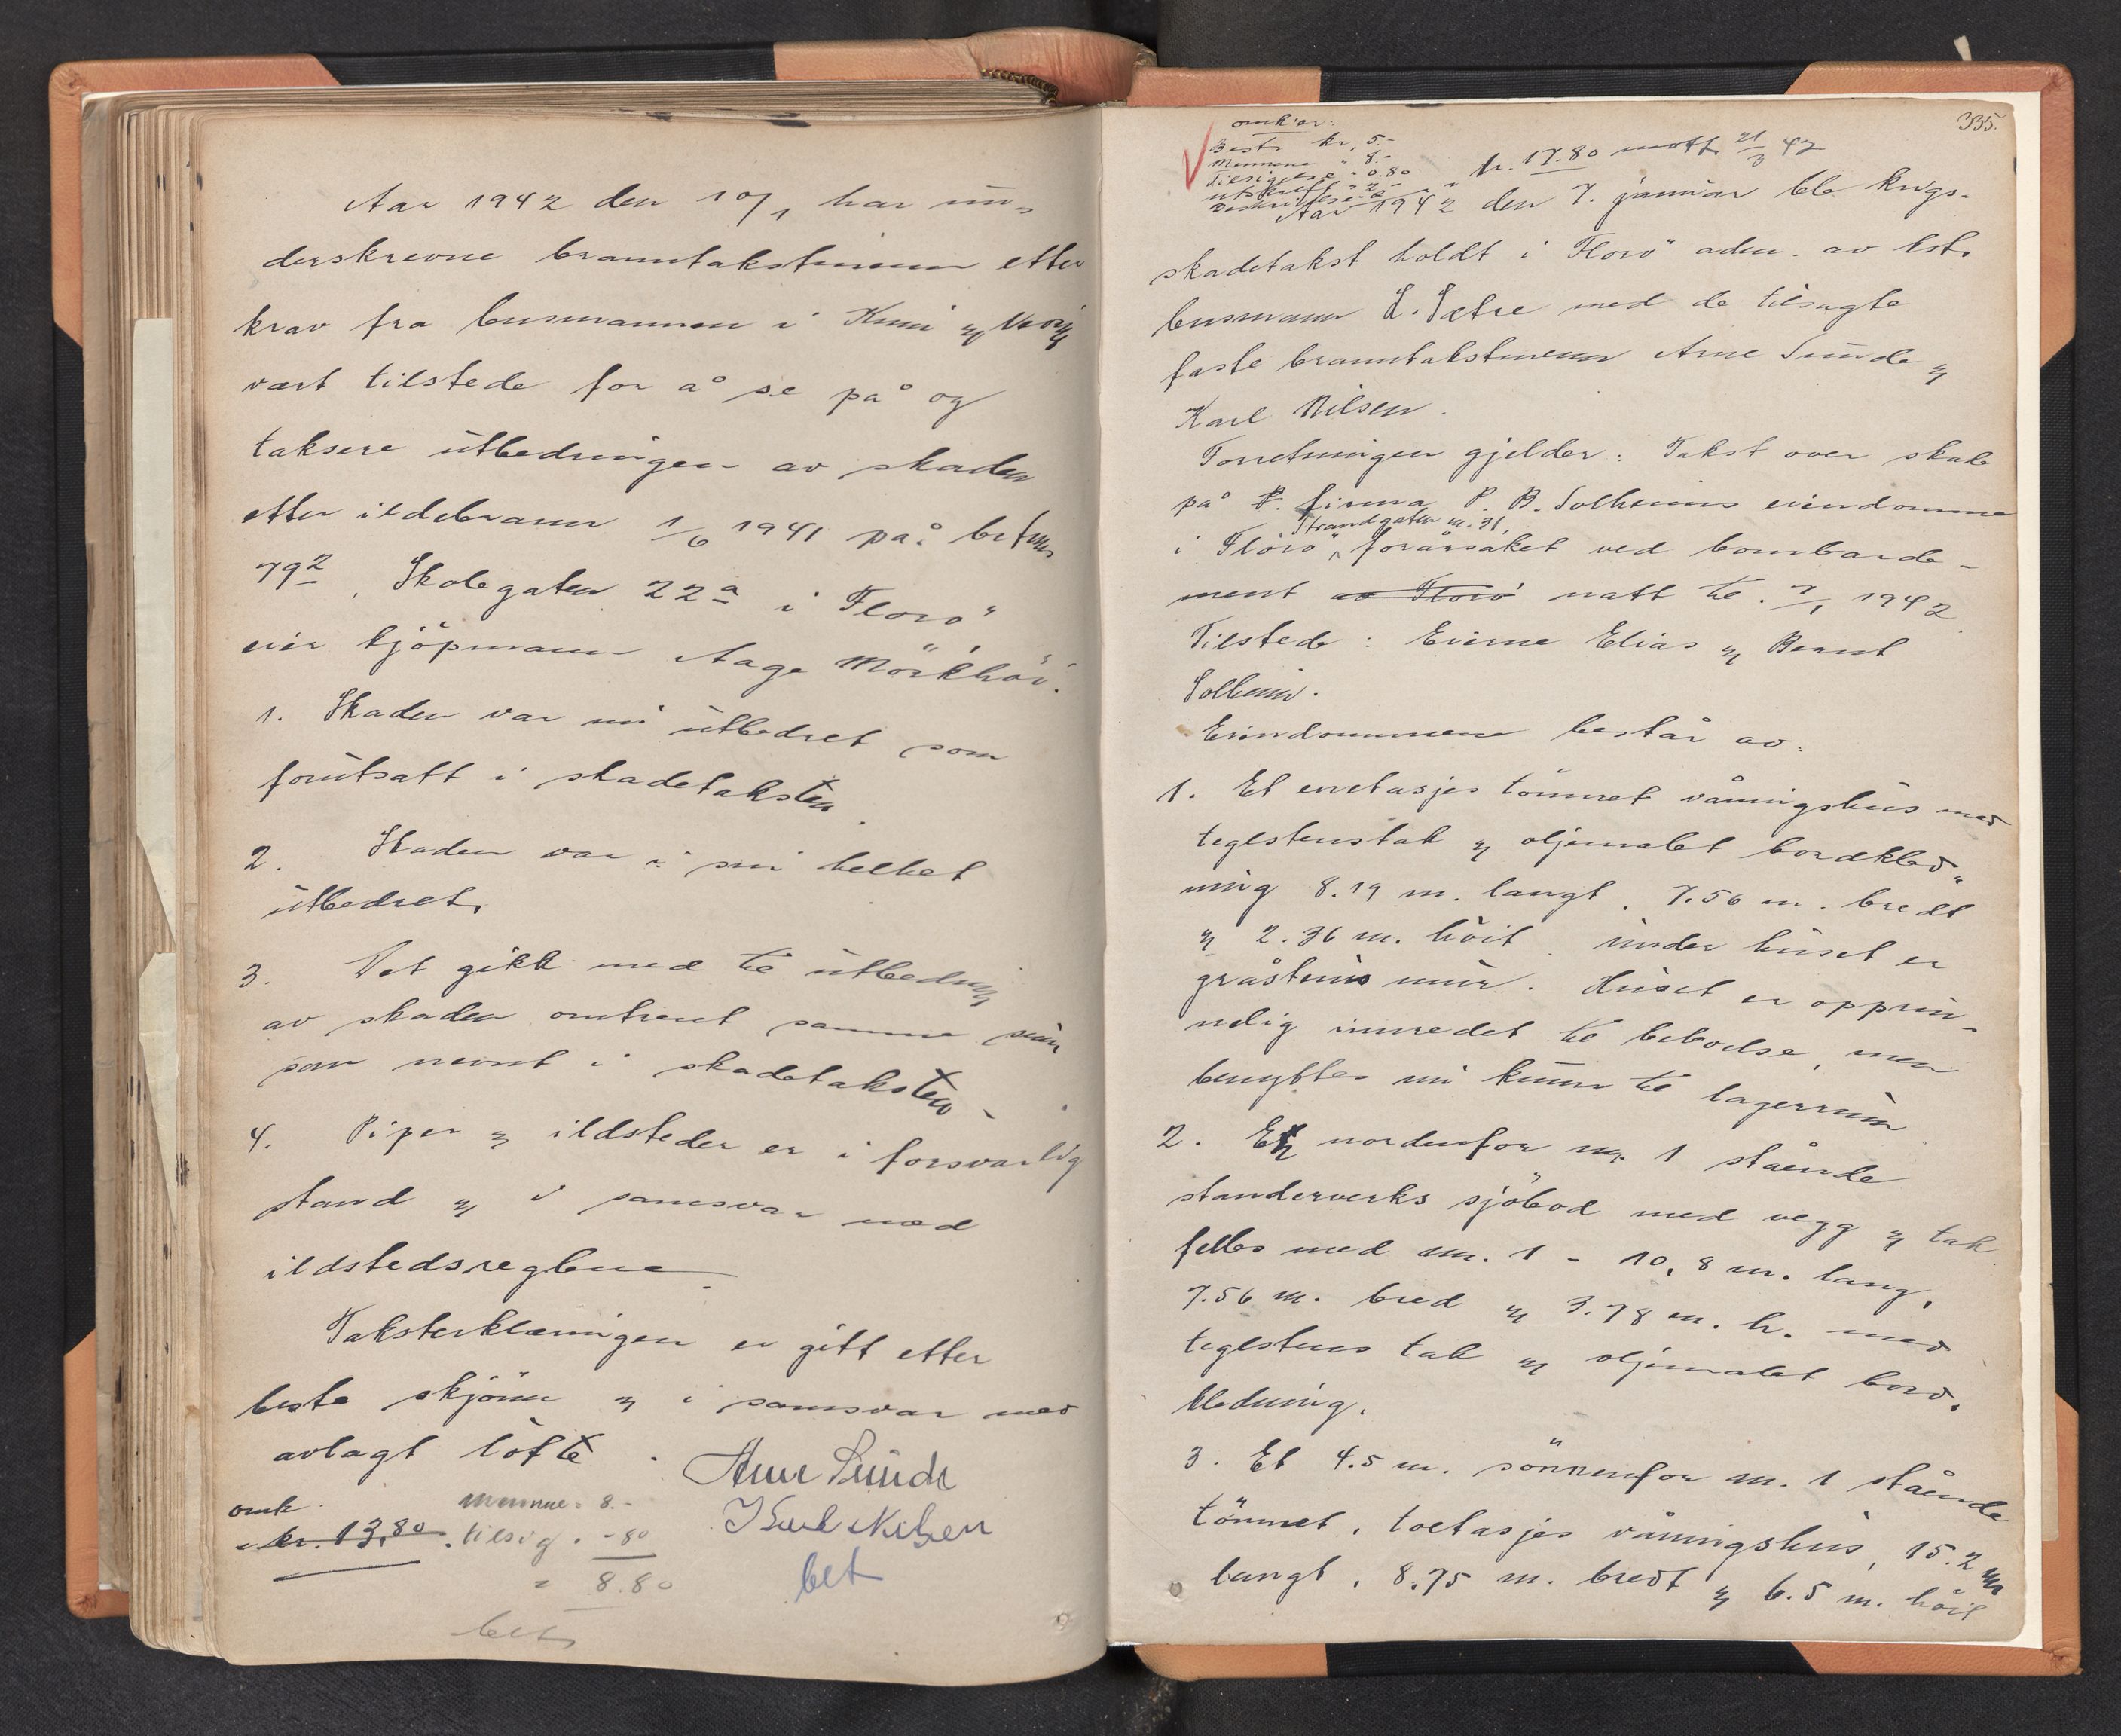 Aar 1942 den 10/1 har un-
derskrevne branntakstmenn etter
krav fra lensmannen i Kinn og
vært tilstede for å se på og
taksere utbedringen av skaden
etter ildebrann 1/6 1941 på br.fnr.
79², Skolegaten 22ª i Florö
eier kjöpmann Aage Mörkhöi.
1. Skaden var nu utbedret som
forutsatt i skadetaksten.
2. Skaden var i sin helhet
utbedret.
3. Det gikk med til utbedring
av skaden omtrent samme sum
som nevnt i skadetaksten.
4. Piper og ildsteder er i forsvarlig
stand og i samsvar med
ildstedsreglene.
Taksterklæringen er gitt etter
beste skjönn og i samsvar med
avlagt löfte.
Arne Sunde
Karl Nilsen
bet
omk
kr. 13.80
Mennene: 8.-
tilsig. - 80
= 8.80
bet
335.
omk.er:
Best. kr. 5.-
Mennene " 8.-
Tilsigelse " 0.80
Utskrift " 2.-
kr. 17.80 mott. 21/3 42
Aar 1942 den 7. januar ble krigs-
skadetakst holdt i Florö adm. av kst.
lensmann L. Sætre med de tilsagte
faste branntakstmenn Arne Sunde og
Karl Nilsen.
Forretningen gjelder: Takst over skade
på P. firma P. B. Solheims eiendomme
Strandgaten nr. 31,
i Florö, forårsaket ved bombarde-
ment av Florö natt til 7/1 1942.
Tilstede: Eierne Elias og Bernt
Solheim.
Eiendommene består av:
1. Et enetasjes tömmret våningshus med
teglstenstak og oljemalet bordkled-
ning 8.19 m. langt, 7.56 m. bredt
og 2.36 m. höit. Under huset er
gråstens mur. Huset er opprin-
nelig innredet til beboelse, men
benyttes nu kunn til lagerrum.
2. En nordenfor nr. 1 stående
standerverks sjöbod med vegg og tak
felles med nr. 1 - 10,8 m. lang,
7.56 m. bred og 3.78 m. h. med
teglstens tak og oljemalet bord-
kledning.
3. Et 4.5 m. sönnenfor nr. 1 stående
tömmret, toetasjes våningshus, 15.2 m
langt, 8.75 m. bredt og 6.5 m. höit